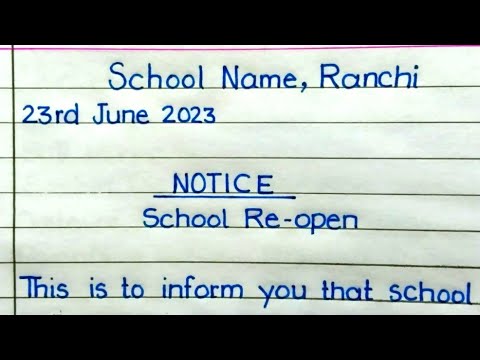 School Name, Ranchi
23rd June 2023
NOTICE
School Re-open
This is to inform you that school